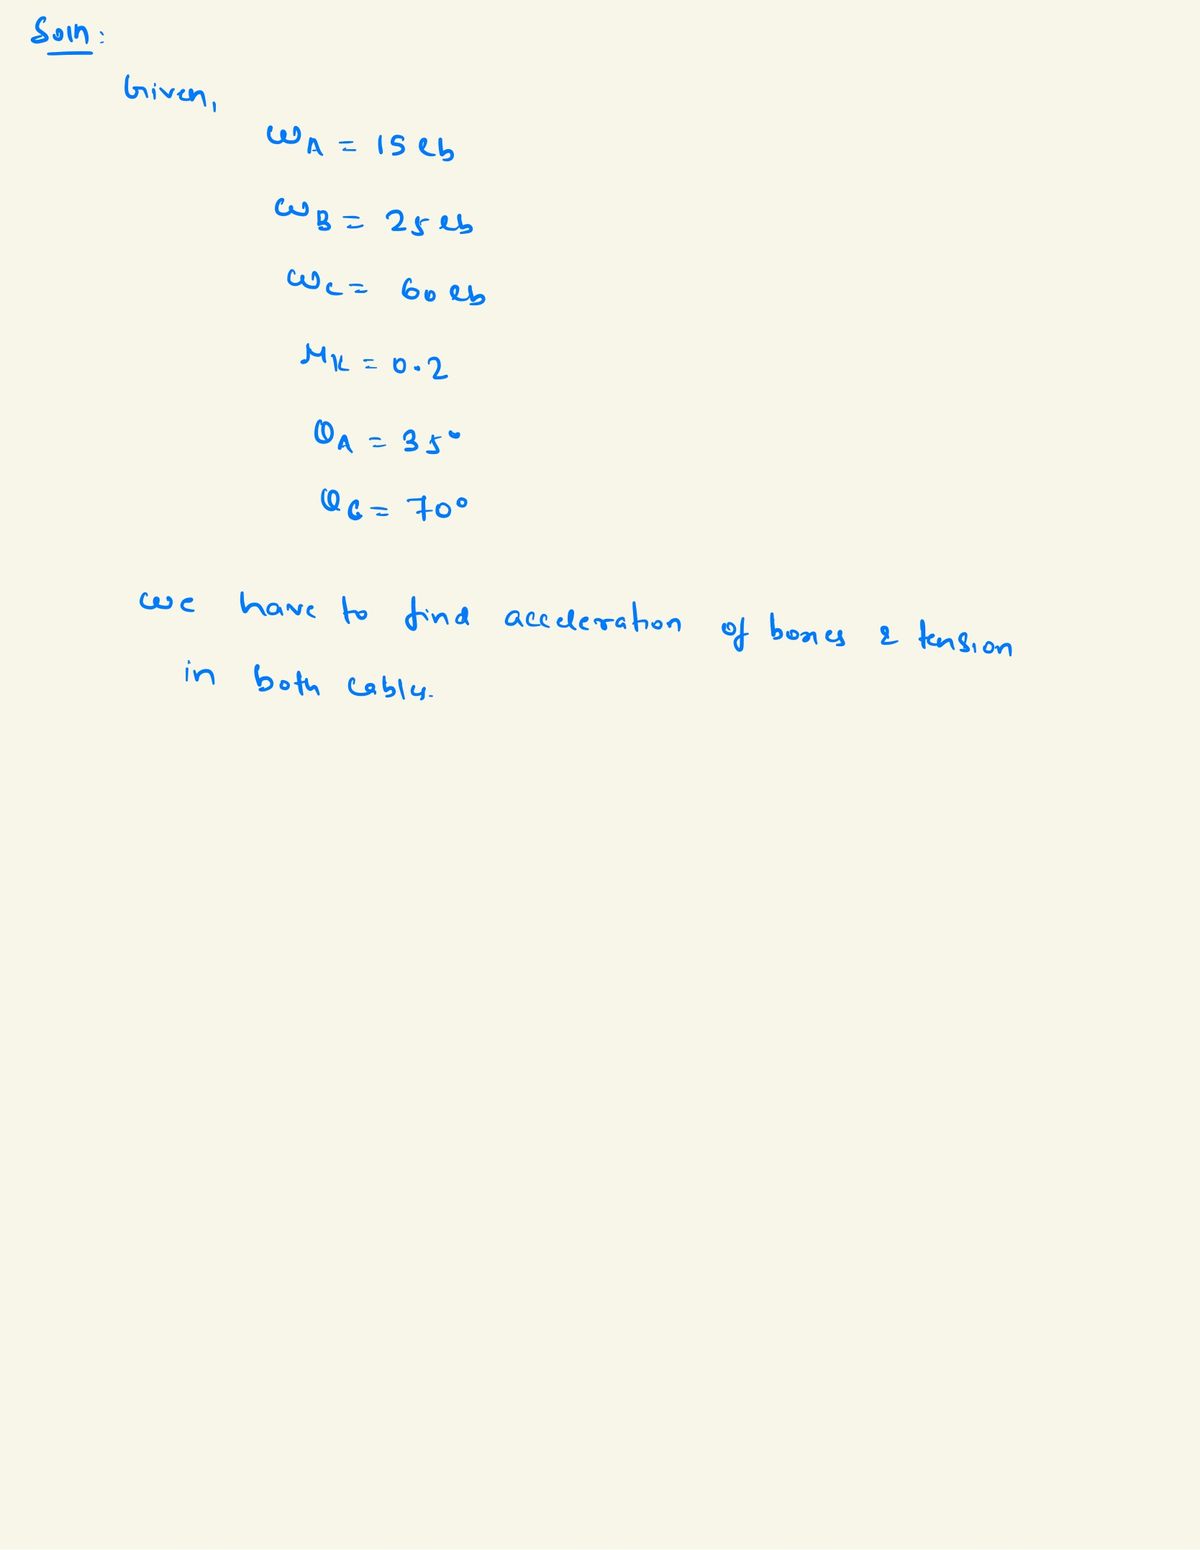 Soln:
Given,
ωA = 15 lb
ωB = 25 lb
ωC = 60 lb
μk = 0.2
θA = 35°
θC = 70°
we have to find acceleration of boxes & tension
in both cables.